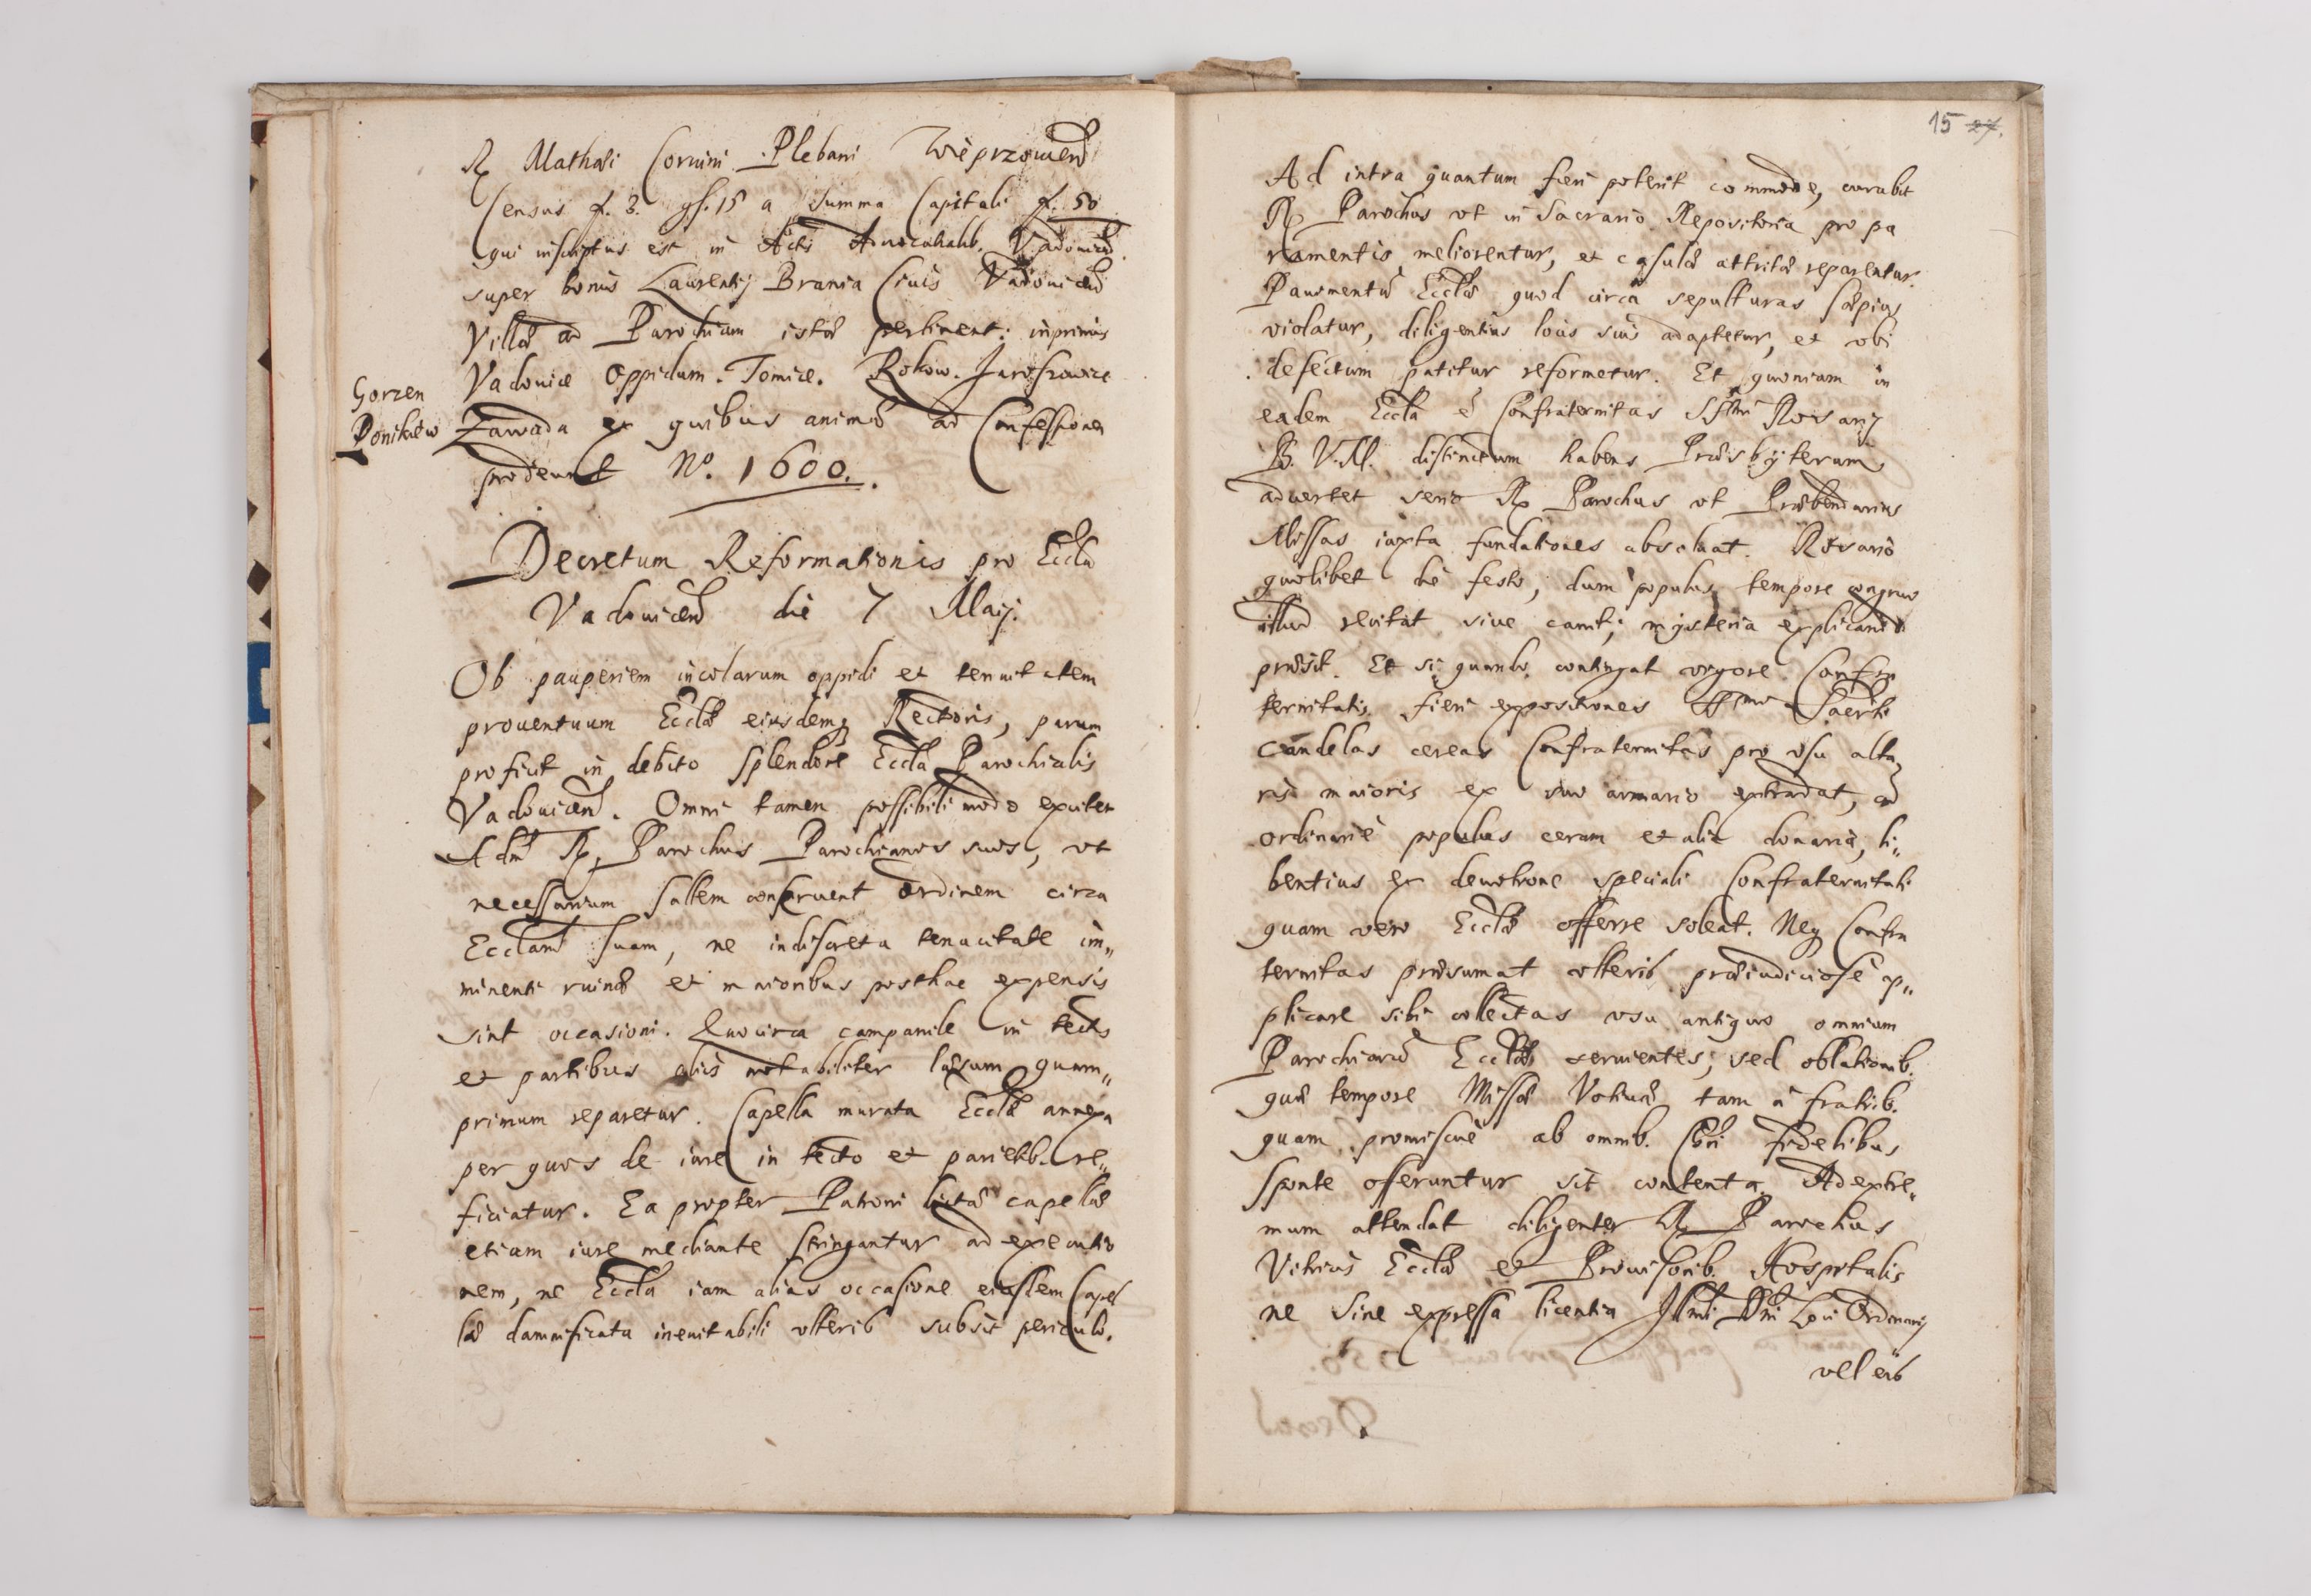 R. Mathæi Coruini Plebani Wieprzouien
Census f. 3. gs. 15 a Summa Capitali f. 50
qui inscriptus est in Actis Aduocatialib. Vadouicen.
super bonis Laurentij Brania Ciuis Vadouicen
Villæ ad Parochiam istā pertinent: inprimis
Vadouice Oppidum. Tomice. Rokow. Jaroszowice
Gorzen
Ponikiew
Zawada ex quibus animæ ad Confessionem
prodeunt No. 1600.
Decretum Reformationis pro Eccla
Vadouicen die 7 Maij.
Ob pauperiem incolarum oppidi et tenuitatem
prouentuum Ecclæ eiusdemq Rectoris, parum
proficit in debito splendore Eccla Parochialis
Vadouicen. Omni tamen possibili modo excitet
Adm R. Parochus Parochianos suos, vt
necessarium saltem conseruent ordinem circa
Ecclam suam, ne indiscreta tenacitate im„
minenti ruinæ et maioribus posthac expensis
sint occasioni. Quocirca campanile in tecto
et partibus alijs notabiliter læsum quam„
primum reparetur. Capella murata Ecclæ annexa
per quos de iure in tecto et parietib. re„
ficiatur. Ea propter Patroni dictæ capellæ
etiam iure mediante stringantur ad executio
nem, ne Eccla iam alias occasione eiusdem Capel
læ damnificata ineuitabili vlterius subsit periculo.
15 27.
Ad intra quantum fieri poterit commode, curabit
R. Parochus vt in Sacrario Repositoria pro pa
ramentis meliorentur, et casulæ attritæ reparentur.
Pauimentū Ecclæ quod circa sepulturas sæpius
violatur, diligentius locis suis adaptetur, et vbi
defectum patitur reformetur. Et quoniam in
eadem Eccla ē Confraternitas SSmi Rosarij
B. V. M. distinctum habens Præsbyterum
aduertet serio R. Parochus vt Præbendarius
Missas iuxta fundationes absoluat. Rosario
quolibet die festo, dum populus tempore congruo
illud recitat siue canit, mysteria explicando
præsit. Et si quando contingat corpore Confra
ternitatis fieri expositiones SSmi Sacrti
candelas cereas Confraternitas pro vsu alta
ris maioris ex suo armario extradat, cū
ordinarie populus ceram et alia donaria, li„
bentius ex deuotione speciali Confraternitati
quam vero Ecclæ offerre soleat. Neq Confra
ternitas præsumat vlterius præiudiciose ap„
plicare sibi collectas vsu antiquo omnium
Parochiarū Ecclæ seruientes; sed oblationib.
quæ tempore Missæ Votiuæ tam à fratrib.
quam promiscuè ab omnib. Chri fidelibus
sponte offeruntur sit contenta. Ad extre„
mum attendat diligenter R. Parochus
Vitricis Ecclæ et Prouisorib. Hospitalis
ne sine expressa licentia Illmi Dni Loci Ordinarij
vel eius